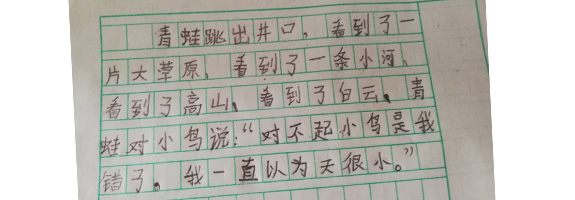 青蛙跳出井口，看到了一
片大草原、看到了一条小河、
看到了高山、看到了白云。青
蛙对小鸟说：“对不起小鸟是我
错了。我一直以为天很小。”